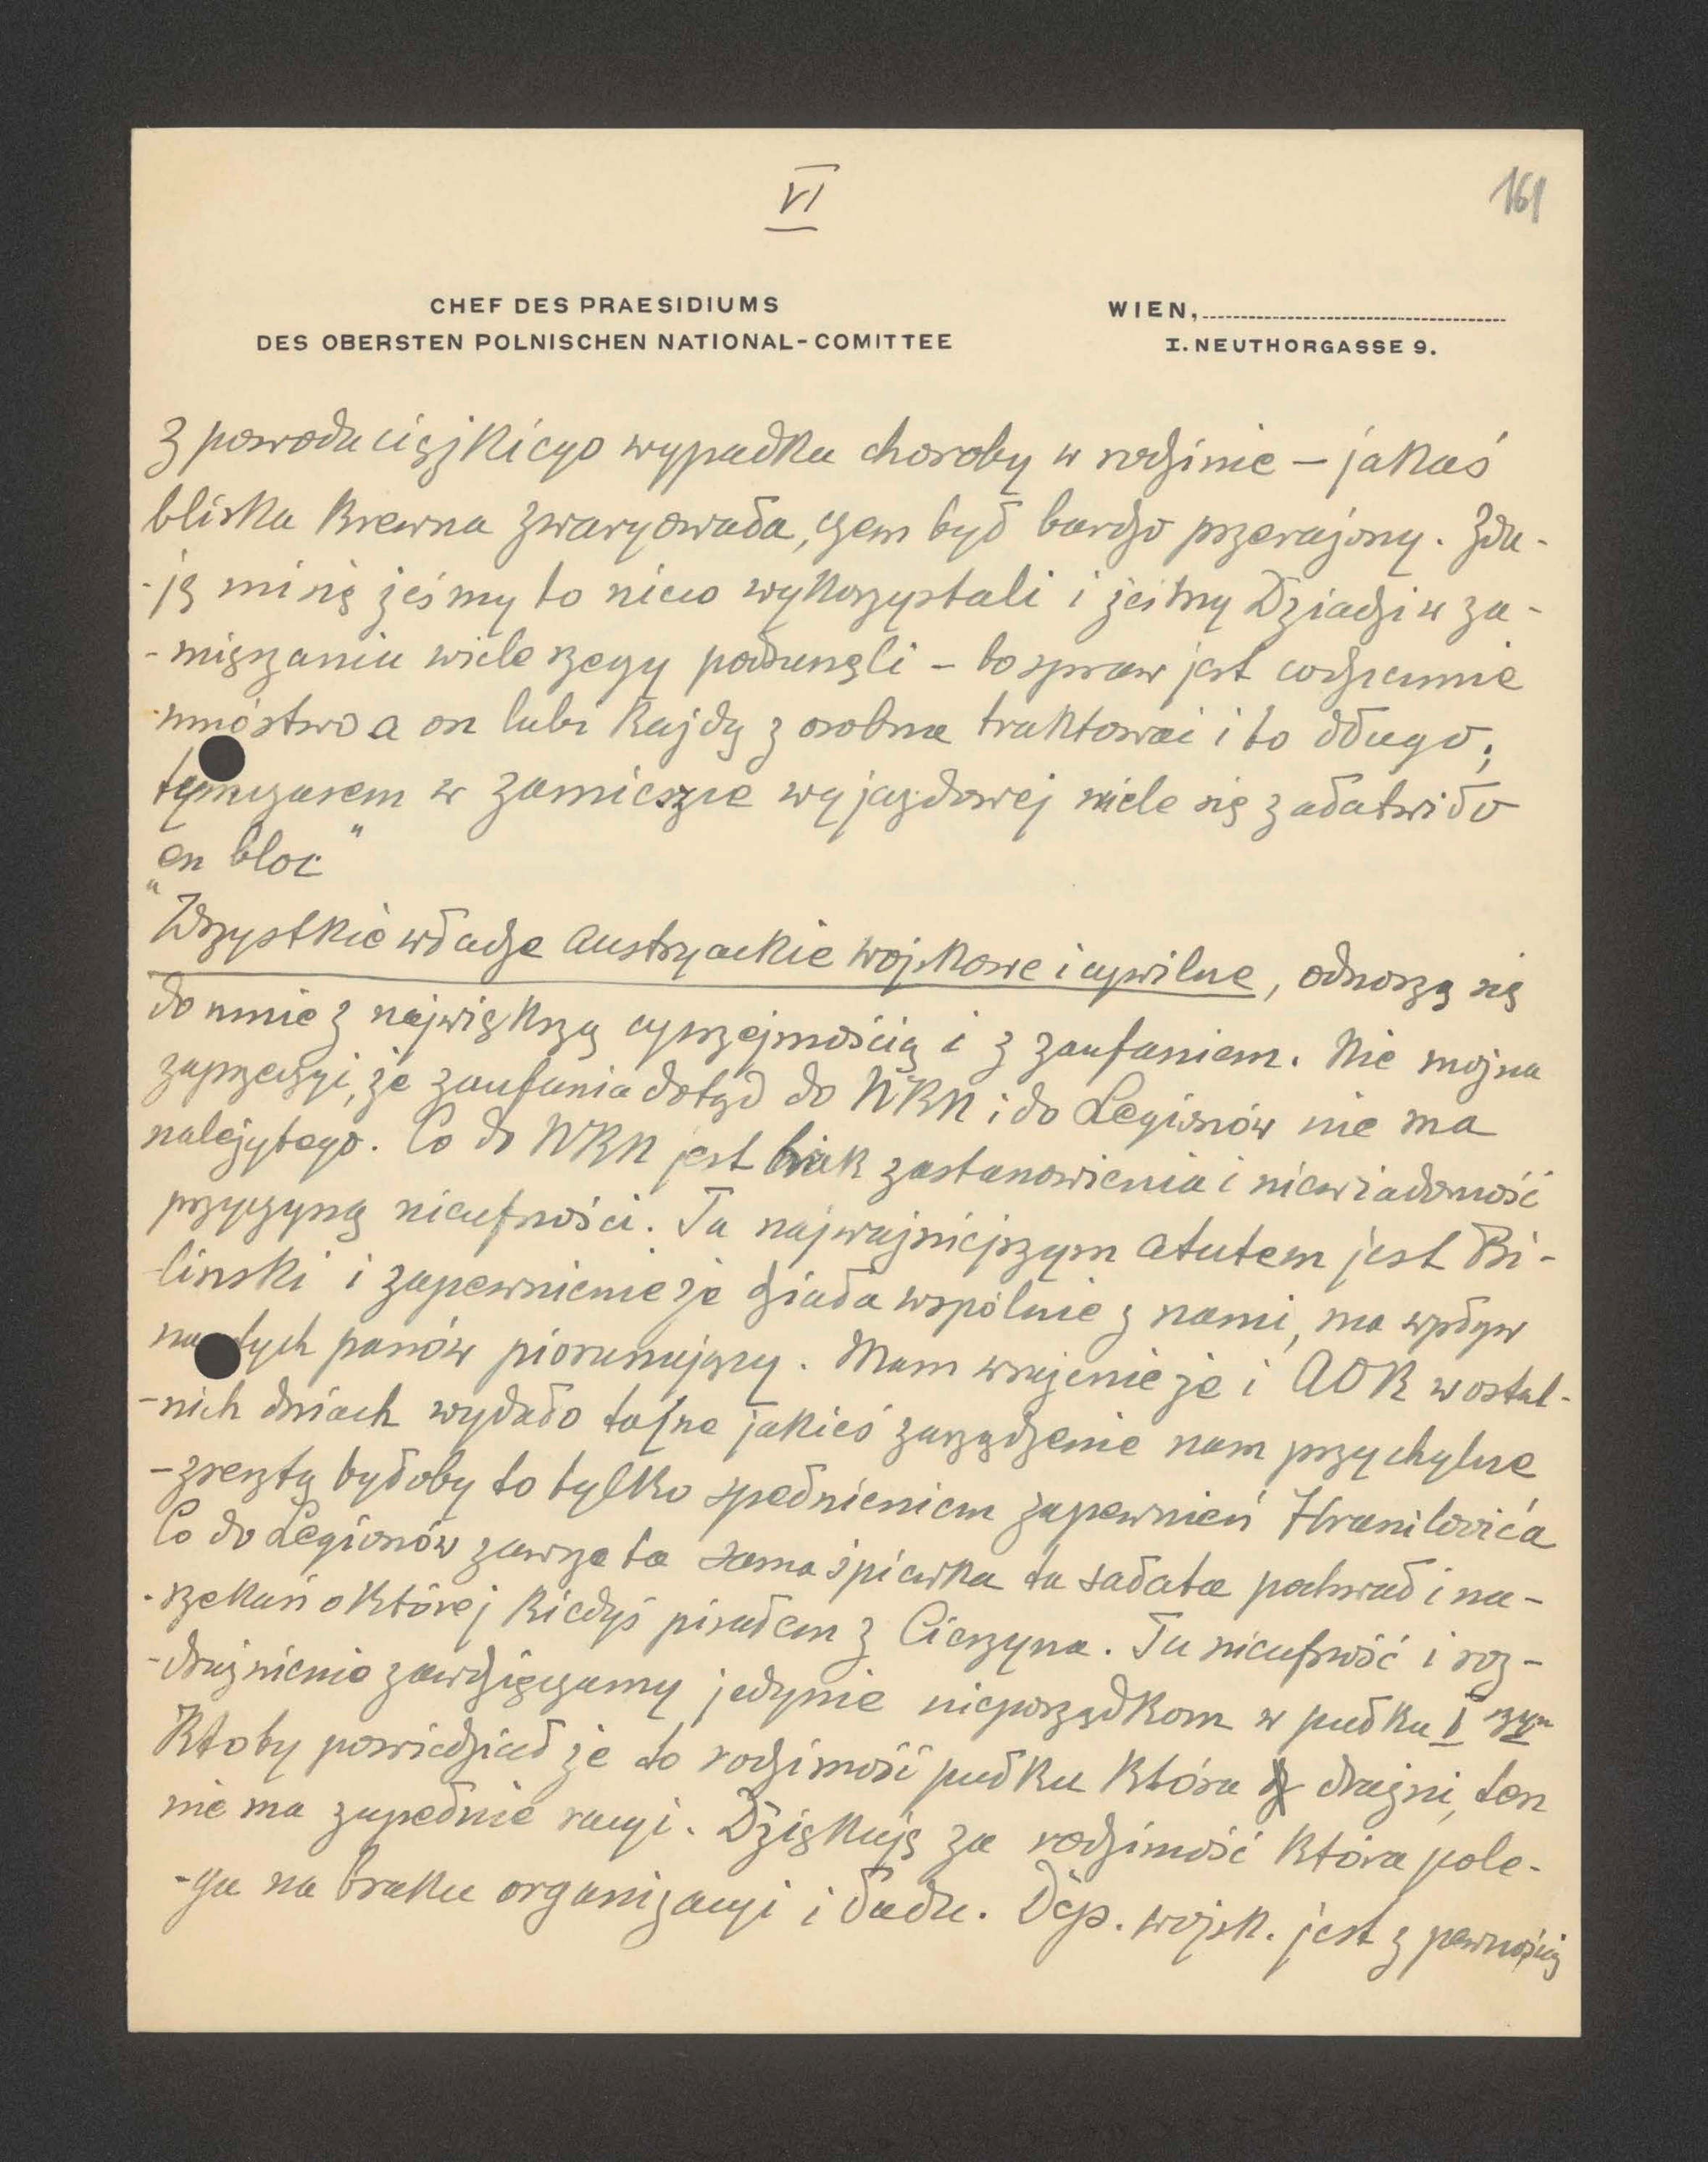 VI
161
CHEF DES PRAESIDIUMS
DES OBERSTEN POLNISCHEN NATIONAL-COMITTEE
WIEN,
I. NEUTHORGASSE 9.
z powodu ciężkiego wypadku choroby w rodzinie – jakaś
bliska krewna zwaryowała, czem był bardzo przerażony. Zda-
-ję mi się żeśmy to nieco wykorzystali i żeśmy Dziadzi w za-
-mięszaniu wiele rzeczy podsunęli – bo spraw jest codziennie
mnóstwo a on lubi każdą z osobna traktować i to długo;
tymczasem w zamieszce wyjazdowej wiele się załatwiło
"en bloc"
Wszystkie władze austryackie wojskowe i cywilne, odnoszą się
do mnie z największą uprzejmością i z zaufaniem. Nie można
zaprzeczyć, że zaufania dotąd do NKN i do Legionów nie ma
należytego. Co do NKN jest brak zastanowienia i nieświadomość
przyczyną nieufności. Tu najważniejszym atutem jest Bi-
-linski i zapewnienie że działa wspólnie z nami, ma wpływ
na tych panów piorunujący. Mam wrażenie że i AOK w ostat-
-nich dniach wydało tajne jakieś zarządzenie nam przychylne
– zresztą byłoby to tylko spełnieniem zapewnień Hranilovića
Co do Legionów zawsze ta sama śpiewka ta sałata pochwał i na-
-rzekań o której kiedyś pisałem z Cieszyna. Tu nieufność i roz-
-drażnienie zawdzięczamy jedynie nieporządkom w pułku I szym
Ktoby powiedział że to rodzimość pułku która drażni, ten
nie ma zupełnie racyi. Dziękuję za rodzimość która pole-
-ga na braku organizacyi i ładu. Dep. wojsk. jest z pewnością